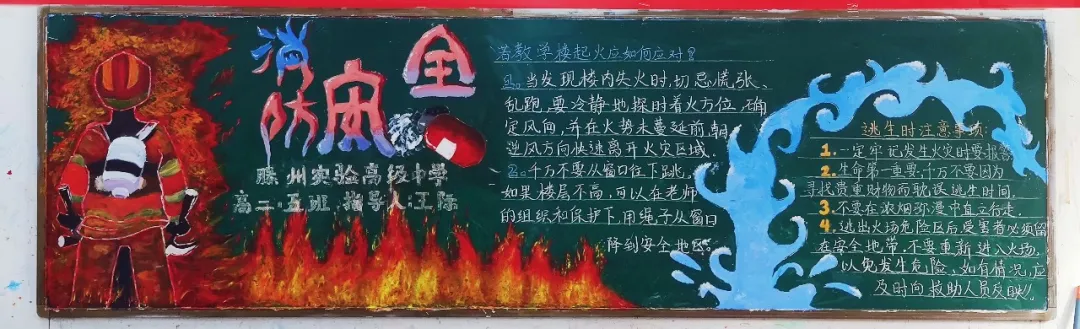 消防安全
滕州实验高级中学
高二·五班 指导人:王际
若教学楼起火应如何应对?
1. 当发现楼内失火时,切忌慌张、
乱跑,要冷静地探时着火方位,确
定风向,并在火势未蔓延前,朝
逆风方向快速离开火灾区域.
2. 千万不要从窗口往下跳,
如果楼层不高,可以在老师
的组织和保护下,用绳子从窗口
降到安全地区。
逃生时注意事项:
1. 一定牢记发生火灾时要报警
2. 生命第一重要,千万不要因为
寻找贵重财物而耽误逃生时间.
3. 不要在浓烟弥漫中直立行走.
4. 逃出火场危险区后,受害者必须留
在安全地带,不要重新进入火场,
以免发生危险,如有情况,应
及时向救助人员反映!!